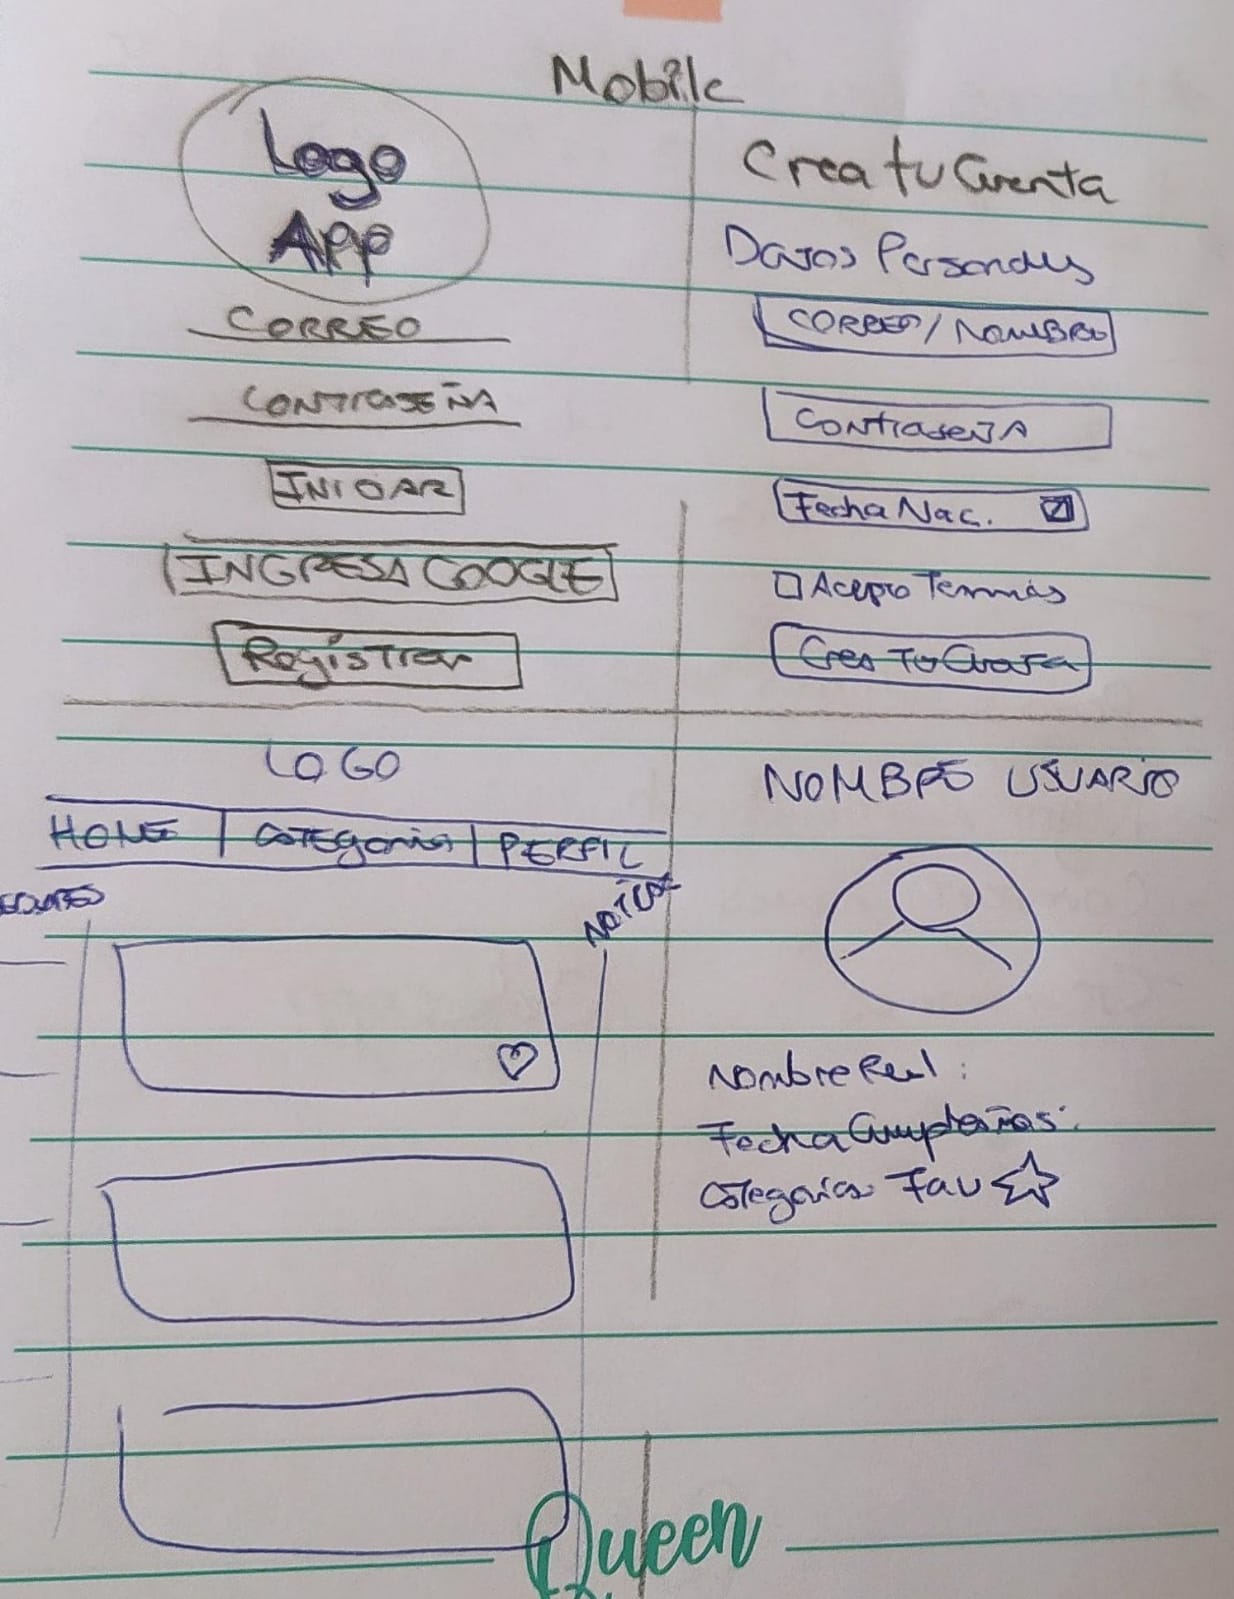 Mobile
Logo
App
CORREO
CONTRASEÑA
INICIAR
INGRESA GOOGLE
Registrar
Crea tu Cuenta
Datos Personales
CORREO/NOMBRE
Contraseña
Fecha Nac.
Acepto Terminos
Crea Tu Cuenta
LOGO
HOME | CATEgorias | PERFIL
NOMBRE USUARIO
Nombre Real:
Fecha Cumpleaños:
Categorias Fav
Queen